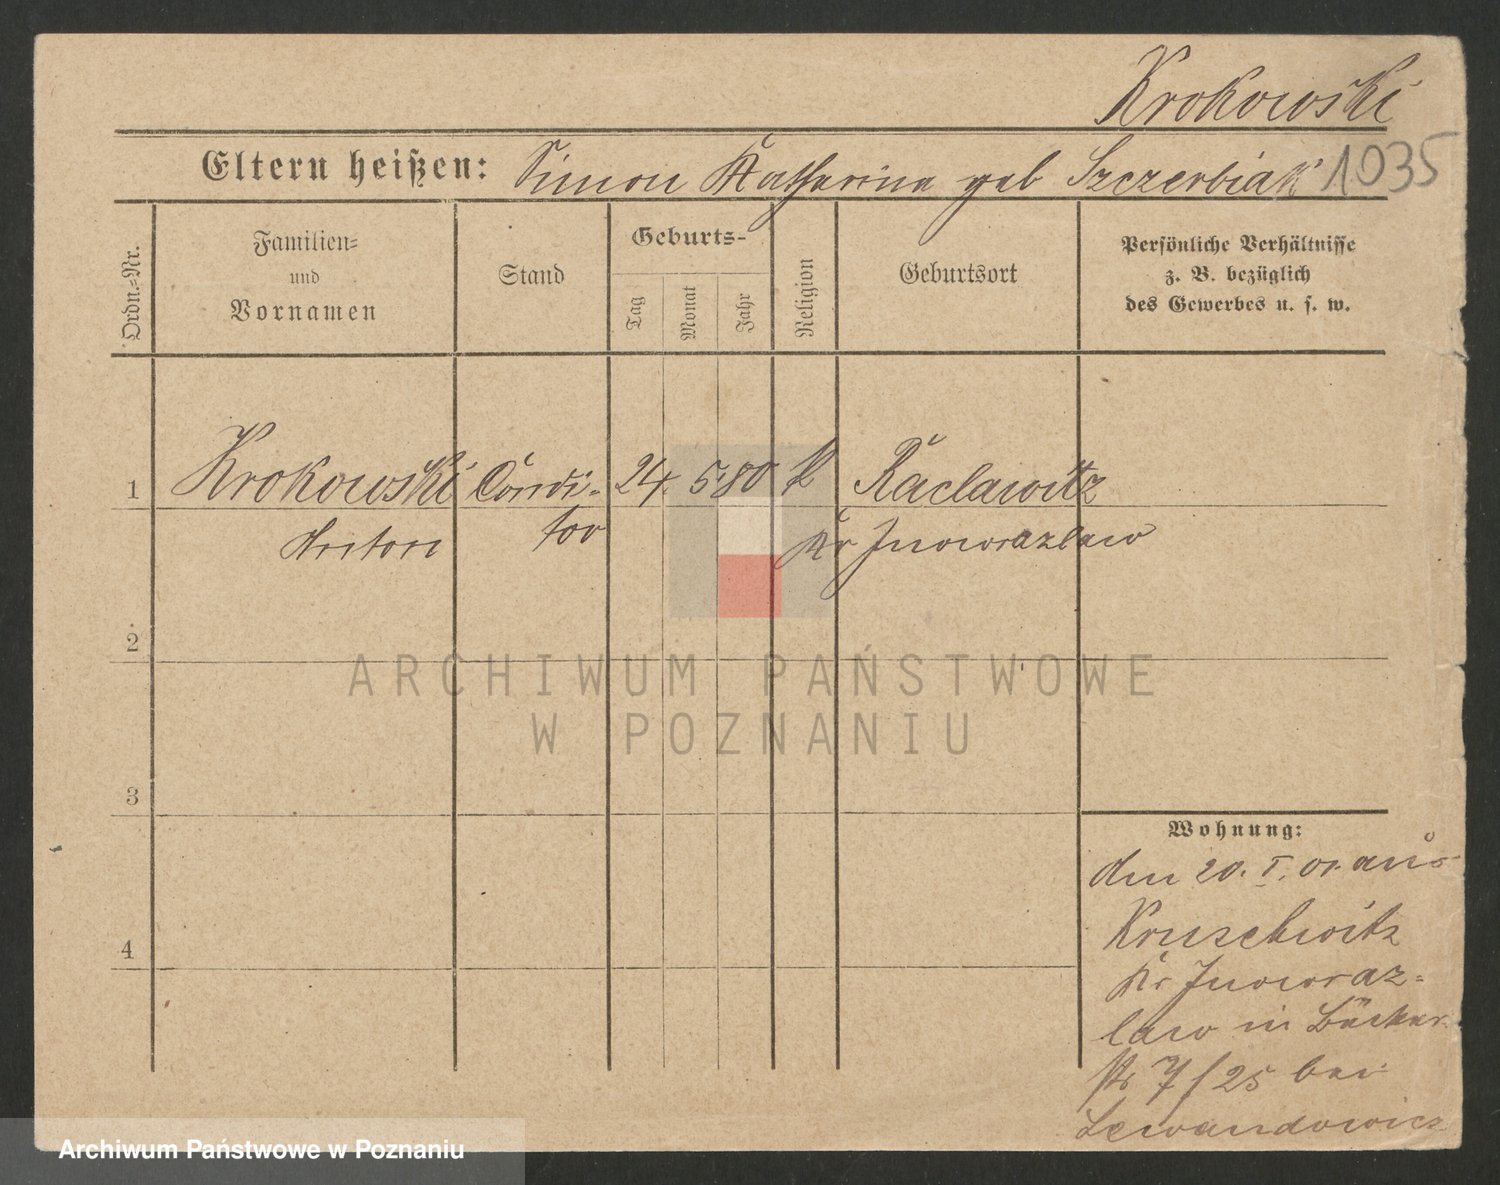 Krokowski
Eltern heißen: Simon Katharina geb Szczerbiak 1035
Ordn.-Nr.
Familien-
und
Vornamen
Stand
Geburts-
Tag
Monat
Jahr
Religion
Geburtsort
Persönliche Verhältnisse
z. B. bezüglich
des Gewerbes u. s. w.
1 Krokowski Condi- 24. 5. 80 k Raclawitz
Anton tor Kr Inowrazlaw
2
3
4
Wohnung:
den 20. I. 01. aus
Kruschwitz
Kr Inowraz-
law in Bäcker
str 7/25 bei
Lewandowicz
ARCHIWUM PAŃSTWOWE
W POZNANIU
Archiwum Państwowe w Poznaniu